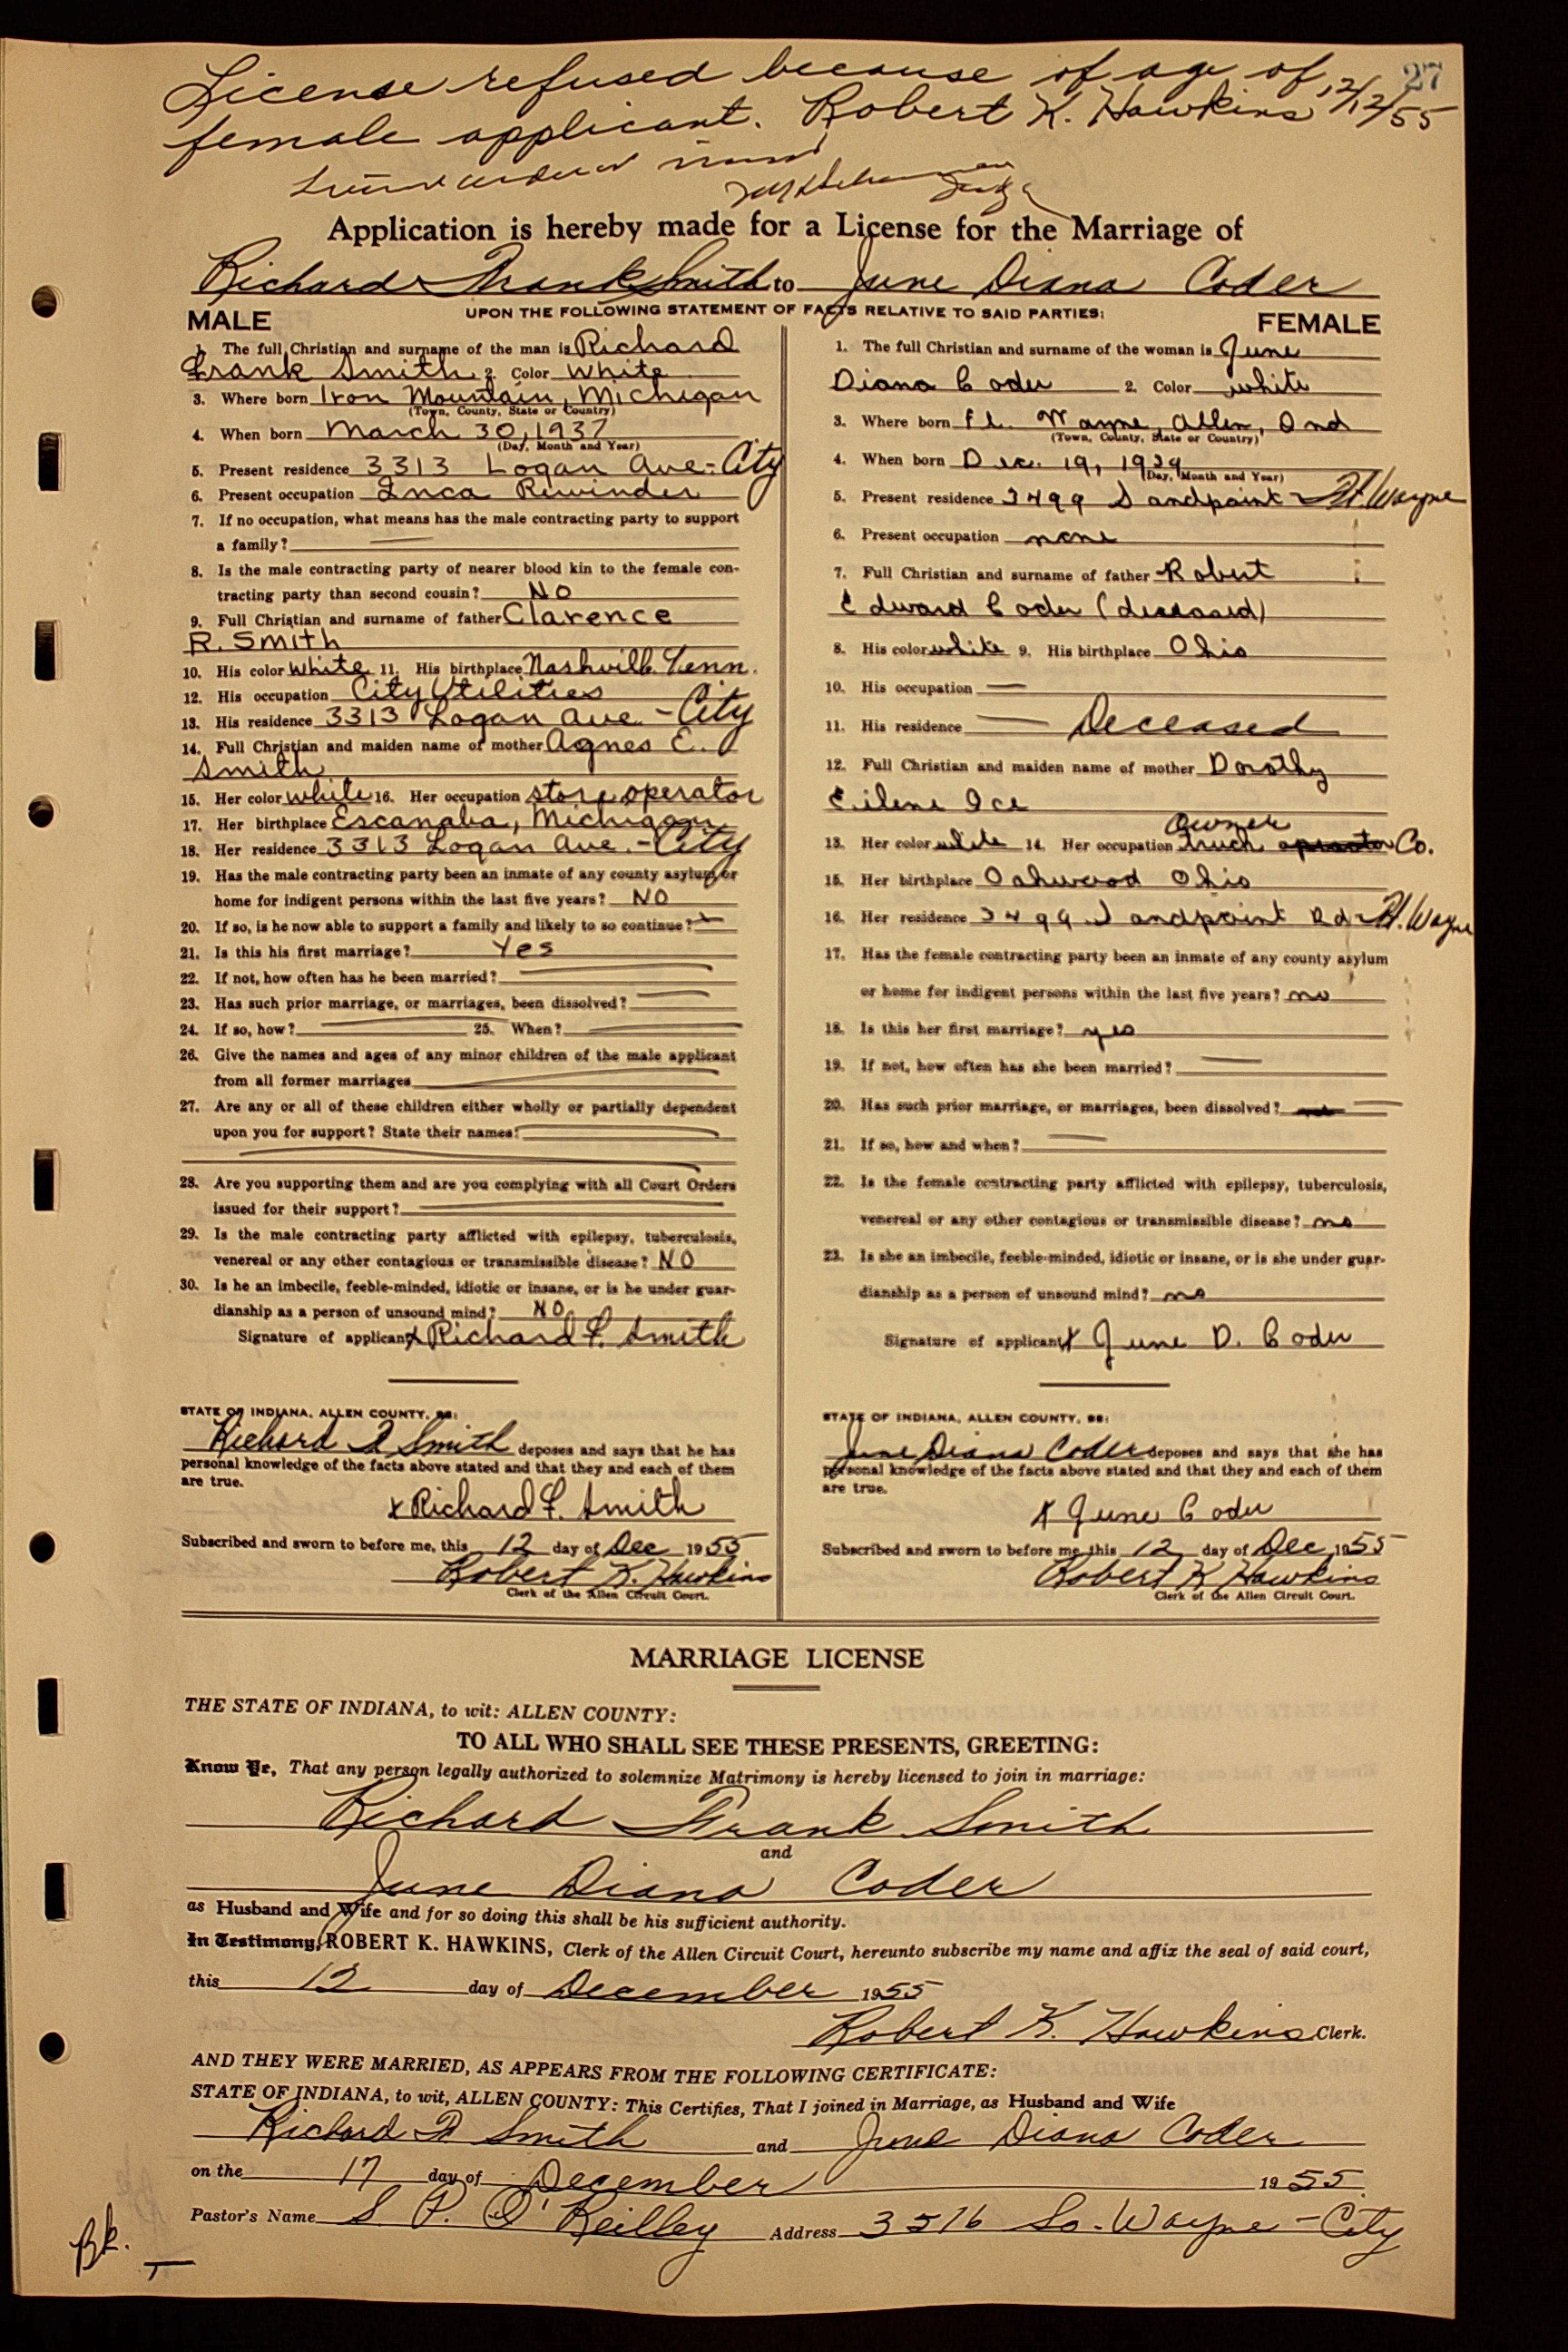 27
License refused because of age of
female applicant. Robert K. Hawkins 12/12/55
Application is hereby made for a License for the Marriage of
Richard Frank Smith to June Diana Coder
UPON THE FOLLOWING STATEMENT OF FACTS RELATIVE TO SAID PARTIES:
MALE
1. The full Christian and surname of the man is Richard
Frank Smith 2. Color White
3. Where born Iron Mountain, Michigan
(Town, County, State or Country)
4. When born March 30, 1937
(Day, Month and Year)
5. Present residence 3313 Logan Ave - City
6. Present occupation Inca Rewinder
7. If no occupation, what means has the male contracting party to support
a family?
8. Is the male contracting party of nearer blood kin to the female con-
tracting party than second cousin? No
9. Full Christian and surname of father Clarence
R. Smith
10. His color white 11. His birthplace Nashville Tenn.
12. His occupation City Utilities
13. His residence 3313 Logan Ave. - City
14. Full Christian and maiden name of mother Agnes E.
Smith
15. Her color white 16. Her occupation store operator
17. Her birthplace Escanaba, Michigan
18. Her residence 3313 Logan Ave. - City
19. Has the male contracting party been an inmate of any county asylum or
home for indigent persons within the last five years? NO
20. If so, is he now able to support a family and likely to so continue?
21. Is this his first marriage? Yes
22. If not, how often has he been married?
23. Has such prior marriage, or marriages, been dissolved?
24. If so, how? 25. When?
26. Give the names and ages of any minor children of the male applicant
from all former marriages
27. Are any or all of these children either wholly or partially dependent
upon you for support? State their names:
28. Are you supporting them and are you complying with all Court Orders
issued for their support?
29. Is the male contracting party afflicted with epilepsy, tuberculosis,
venereal or any other contagious or transmissible disease? NO
30. Is he an imbecile, feeble-minded, idiotic or insane, or is he under guar-
dianship as a person of unsound mind? NO
Signature of applicant x Richard F. Smith
STATE OF INDIANA, ALLEN COUNTY, SS:
Richard F Smith deposes and says that he has
personal knowledge of the facts above stated and that they and each of them
are true.
x Richard F. Smith
Subscribed and sworn to before me, this 12 day of Dec 1955
Robert K. Hawkins
Clerk of the Allen Circuit Court.
FEMALE
1. The full Christian and surname of the woman is June
Diana Coder 2. Color white
3. Where born Ft. Wayne, Allen, Ind
(Town, County, State or Country)
4. When born Dec. 19, 1939
(Day, Month and Year)
5. Present residence 3499 Sandpoint - Ft. Wayne
6. Present occupation none
7. Full Christian and surname of father Robert
Edward Coder (deceased)
8. His color white 9. His birthplace Ohio
10. His occupation
11. His residence Deceased
12. Full Christian and maiden name of mother Dorothy
Eilene Ice
owner
13. Her color white 14. Her occupation truck operator Co.
15. Her birthplace Oakwood Ohio
16. Her residence 3499 Sandpoint Rd - Ft. Wayne
17. Has the female contracting party been an inmate of any county asylum
or home for indigent persons within the last five years? no
18. Is this her first marriage? yes
19. If not, how often has she been married?
20. Has such prior marriage, or marriages, been dissolved?
21. If so, how and when?
22. Is the female contracting party afflicted with epilepsy, tuberculosis,
venereal or any other contagious or transmissible disease? no
23. Is she an imbecile, feeble-minded, idiotic or insane, or is she under guar-
dianship as a person of unsound mind? no
Signature of applicant x June D. Coder
STATE OF INDIANA, ALLEN COUNTY, SS:
June Diana Coder deposes and says that she has
personal knowledge of the facts above stated and that they and each of them
are true.
x June Coder
Subscribed and sworn to before me, this 12 day of Dec 1955
Robert K Hawkins
Clerk of the Allen Circuit Court.
MARRIAGE LICENSE
THE STATE OF INDIANA, to wit: ALLEN COUNTY:
TO ALL WHO SHALL SEE THESE PRESENTS, GREETING:
Know Ye, That any person legally authorized to solemnize Matrimony is hereby licensed to join in marriage:
Richard Frank Smith
and
June Diana Coder
as Husband and Wife and for so doing this shall be his sufficient authority.
In Testimony, ROBERT K. HAWKINS, Clerk of the Allen Circuit Court, hereunto subscribe my name and affix the seal of said court,
this 12 day of December 1955
Robert K. Hawkins Clerk.
AND THEY WERE MARRIED, AS APPEARS FROM THE FOLLOWING CERTIFICATE:
STATE OF INDIANA, to wit, ALLEN COUNTY: This Certifies, That I joined in Marriage, as Husband and Wife
Richard F Smith and June Diana Coder
on the 17 day of December 1955
Pastor's Name S P. O'Reilley Address 3516 So. Wayne - City
Bk.